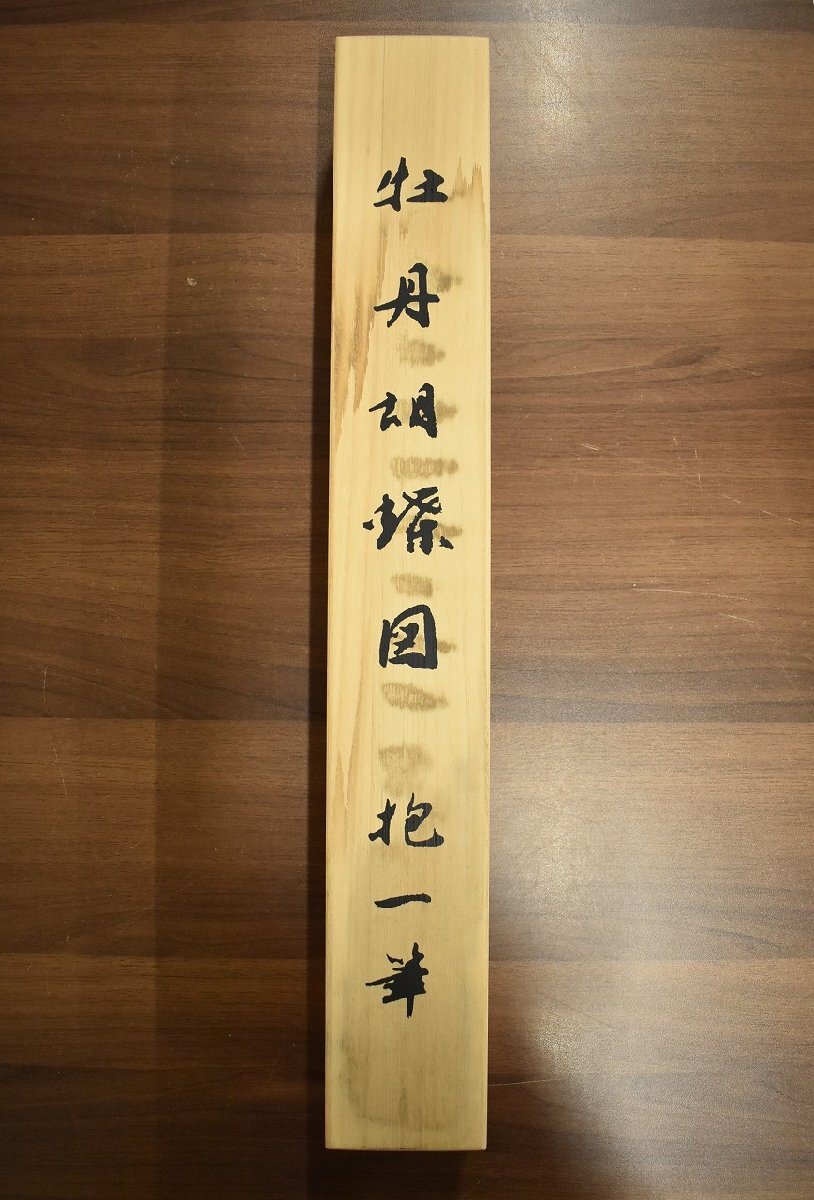 牡丹胡蝶図 抱一筆